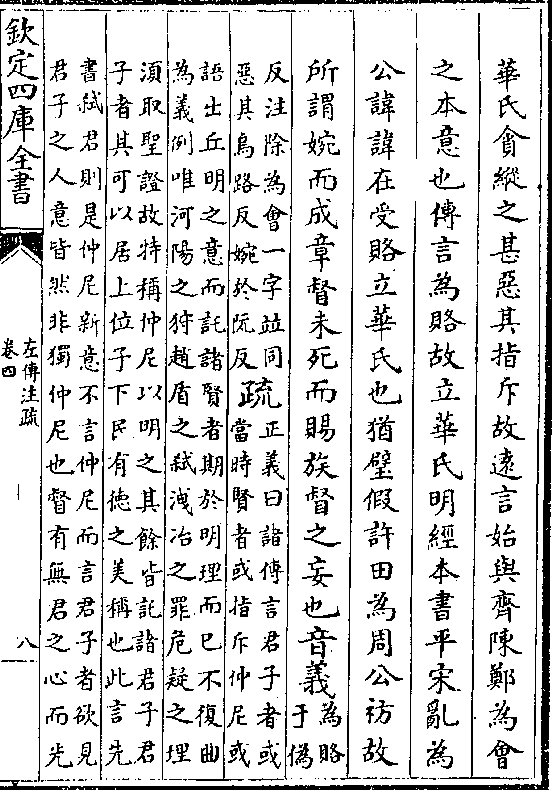 華氏貪縱之甚惡其指斥故遠言始與齊陳鄭為會
之本意也傳言為賂故立華氏明經本書平宋亂為
公諱諱在受賂立華氏也猶璧假許田為周公祊故
所謂婉而成章督未死而賜族督之妄也音義為賂
于偽
反注除為會一字並同
惡其烏路反婉於阮反
疏正義曰諸傳言君子者或
當時賢者或指斥仲尼或
語出丘明之意而託諸賢者期於明理而已不復曲
為義例唯河陽之狩趙盾之弑洩冶之罪危疑之理
須取聖證故特稱仲尼以明之其餘皆託諸君子君
子者其可以居上位子下民有德之美稱也此言先
書弑君則是仲尼新意不言仲尼而言君子者欲見
君子之人意皆然非獨仲尼也督有無君之心而先
欽定四庫全書
左傳注疏
卷四
八